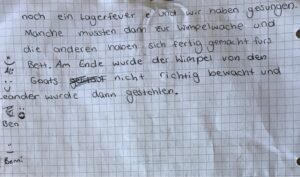 noch ein Lagerfeuer und wir haben gesungen.
Manche mussten dann zur Wimpelwache und
die anderen haben sich fertig gemacht fürs
Bett. Am Ende wurde der Wimpel von den
Goats nicht richtig bewacht und
eander wurde dann gestehlen.
Ben
Benni